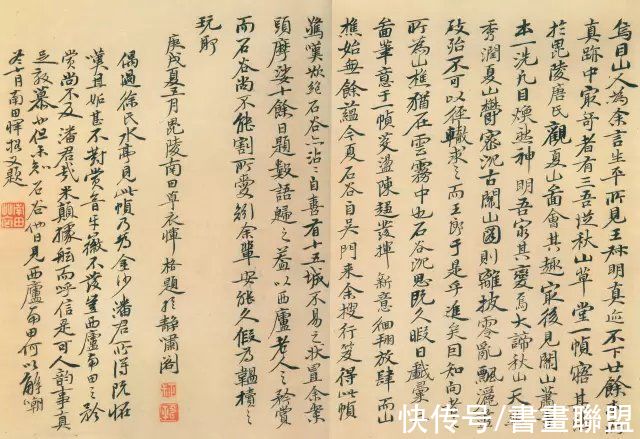 烏目山人為余言生平所見王叔明真迹不下廿餘
真跡中最奇者有三吾從秋山草堂一幀悟其
於毘陵唐氏觀夏山圖會其趣最後見關山蕭
本一洗凡目煥然神明吾窮其變焉大諦秋山天
秀潤夏山鬱密沉古關山圖則離披零亂飄灑
致殆不可以徑轍求之而王郎于是乎進矣因知向者
所為山樵猶在雲霧中也石谷沉思既久暇日戲彙
圖筆意于一幀滌盪陳趨發揮新意徊翔放肆而山
樵始無餘蘊今夏石谷自吳門來余搜行笈得此幀
驚嘆欲絕石谷亦沾沾自喜有十五城不易之狀置余案
頭摩娑十餘日題數語歸之蓋以西廬老人之矜賞
而石谷尚不能割所愛矧余輩安能久假為韞櫝之
玩耶
庚戌夏五月毘陵南田草衣惲格題於靜嘯閣
偶過徐氏水亭見此幀乃為金沙潘君所得既怪
嘆且妬甚不對賞音牙徽不發豈西廬南田之矜
賞尚不及潘君哉米顛據舷而呼信是可人韻事真
足效慕也但未知石谷他日見西廬南田何以解嘲
冬十月南田惲格又題
快传号/書畫聯盟